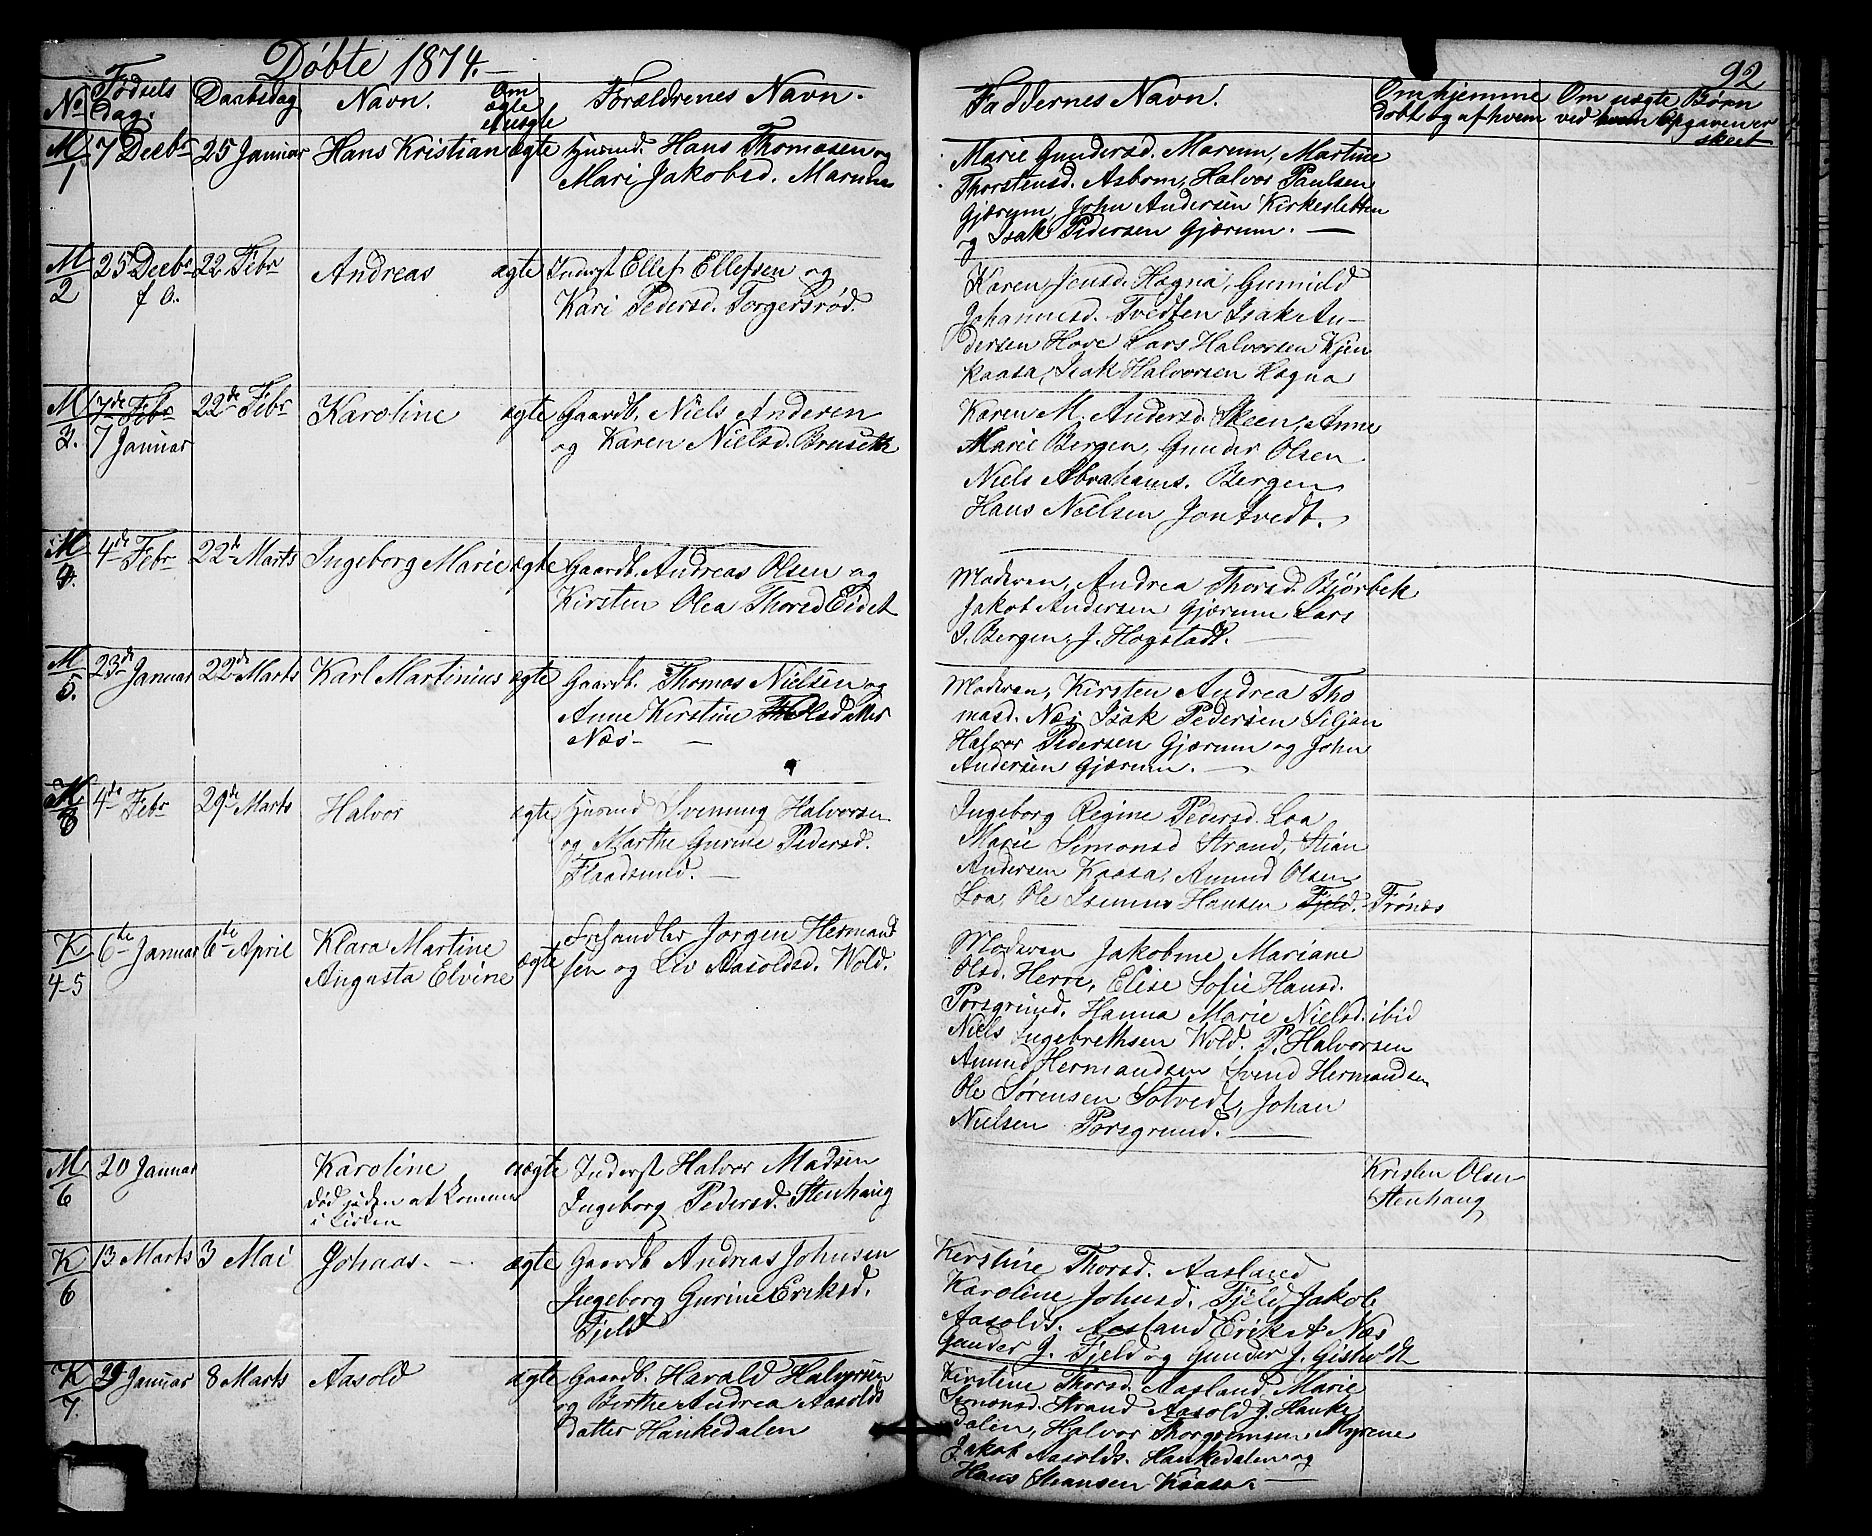 Døbte 1874.
92
No
Fødsels
Dag.
Daabsdag
Navn.
Om
ægte
el uægte
Forældrenes Navn.
Faddernes Navn.
Om hjemme
døbt og af hvem
Om uægte Børn
ved hvem Opgaven er
skeet
M
1
7 Decbr
25 Januar
Hans Kristian
ægte
Husmd. Hans Thomasen og
Mari Jakobsd. Marum
Marie Gundersd. Marum, Martine
Thorstensd. Asbom, Halvor Paulsen
Gjærum, John Andersen Kirkesletten
og Isak Pedersen Gjærum.
M
2
25 Decbr
f. a.
22 Febr
Andreas
ægte
Inderst Ellef Ellefsen og
Kari Pedersd. Torgersrød.
Karen Jensd. Hogna, Gunnild
Johannesd. Tvedten Isak An-
dersen Hove Lars Halvorsen Kjen
kaasa, Isak Halvorsen Hogna
M
3.
7de Febr
7 Januar
22de Febr
Karoline
ægte
Gaardb. Niels Anderen
og Karen Nielsd. Brusett
Karen M. Andersd. Skeen, Anne
Marie Bergen, Gunder Olsen
Niels Abrahams. Bergen
Hans Nielsen Jontvedt.
M
4.
4de Febr
22de Marts
Ingeborg Marie
ægte
Gaardb. Andreas Olsen og
Kirsten Olea Thorsd Eidet
Moderen, Andrea Thorsd. Bjørbek
Jakob Andersen Gjærum Lars
J. Bergen, J. Hogstadt.
M
5.
23de Januar
22de Marts
Karl Martinius
ægte
Gaardb. Thomas Nielsen og
Anne Kirstine Olsdatter
Næs
Moderen, Kirsten Andrea Tho
masd. Næs Isak Pedersen Siljan
Halvor Pedersen Gjærum og John
Andersen Gjærum.
4de Febr
29de Marts
Halvor
ægte
Husmd Svenning Halvorsen
og Marthe Gurine Pedersd.
Flaadsund.
Ingeborg Regine Pedersd. Loa
Marie Simonsd Strand, Stian
Andersen Kaasa, Amund Olsen
Loa, Ole Hansen Fjeld. Frönæs
K
4-5
6te Januar
6te April
Klara Martine
Augusta Elvine
ægte
Jørgen Hermand
sen og Liv Aasoldsd. Wold.
Moderen Jakobine Mariane
Olsd. Herre, Elise Sofie Hansd.
Porsgrund. Hanna Marie Nielsd. ibid
Niels Ingebrethsen Wold. P. Halvorsen
Amund Hermandsen Svend Hermandsen
Ole Sørensen Sotvedt, Johan
Nielsen Porsgrund.
M
6
20 Januar
Karoline
død uden at komme
i Kirken
uægte
Inderst Halvor Madsen
Ingeborg Pedersd. Stenhaug
Kristen Olsen
Stenhaug
K
6
13 Marts
3 Mai
Johaas
ægte
Gaardb Andreas Johnsen
Ingeborg Gurine Eriksd.
Fjeld
Kerstine Thorsd. Aasland
Karoline Johnsd. Fjeld, Jakob
Aasolds. Aasland Erik A Næs
Gunder J. Fjeld og Gunder J. Gisholdt
K
7.
29 Januar
8 Marts
Aasold
ægte
Gaardb. Harald Halvorsen
og Birthe Andrea Aasolds
datter Hankedalen
Kirstine Thorsd. Aasland, Marie
Simonsd. Strand Aasold J. Hanke
dalen, Halvor Thorgrimsen, Myrene
Jakob Aasolds. Hankedalen og
Hans Kaasa.